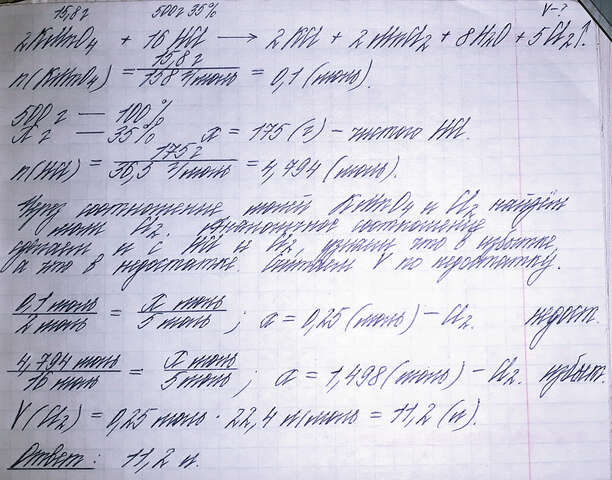 15,8 г 500г 35% V-?
2KMnO4 + 16 HCl → 2 KCl + 2 MnCl2 + 8H2O + 5Cl2↑.
n(KMnO4) = 15,8 г / 158 г/моль = 0,1 (моль).
500 г — 100%
x г — 35% x = 175 (г) - чистого HCl.
n(HCl) = 175 г / 36,5 г/моль = 4,794 (моль).
Через соотношение молей KMnO4 и Cl2 найдём
моли Cl2. Аналогичное соотношение
делаем и с HCl и Cl2, узнаем что в избытке,
а что в недостатке. Считаем V по недостатку.
0,1 моль / 2 моль = x моль / 5 моль ; x = 0,25 (моль) - Cl2. недост.
4,794 моль / 16 моль = x моль / 5 моль ; x = 1,498 (моль) - Cl2. избыт.
V(Cl2) = 0,25 моль · 22,4 л/моль = 11,2 (л).
Ответ: 11,2 л.